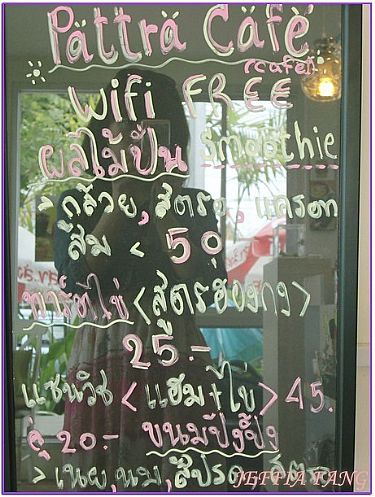 Pattra Café
rcafé
Wifi FREE
ผลไม้ปั่น Smoothie
> กล้วย, สตรอ, แครอท
ส้ม < 50
ทาร์ตไข่ <สูตรฮ่องกง>
25.-
แซนวิช <แฮม+ไข่> 45.
คู่ 20.- ขนมปังปิ้ง
> เนย, นม,
JEFFIA FANG